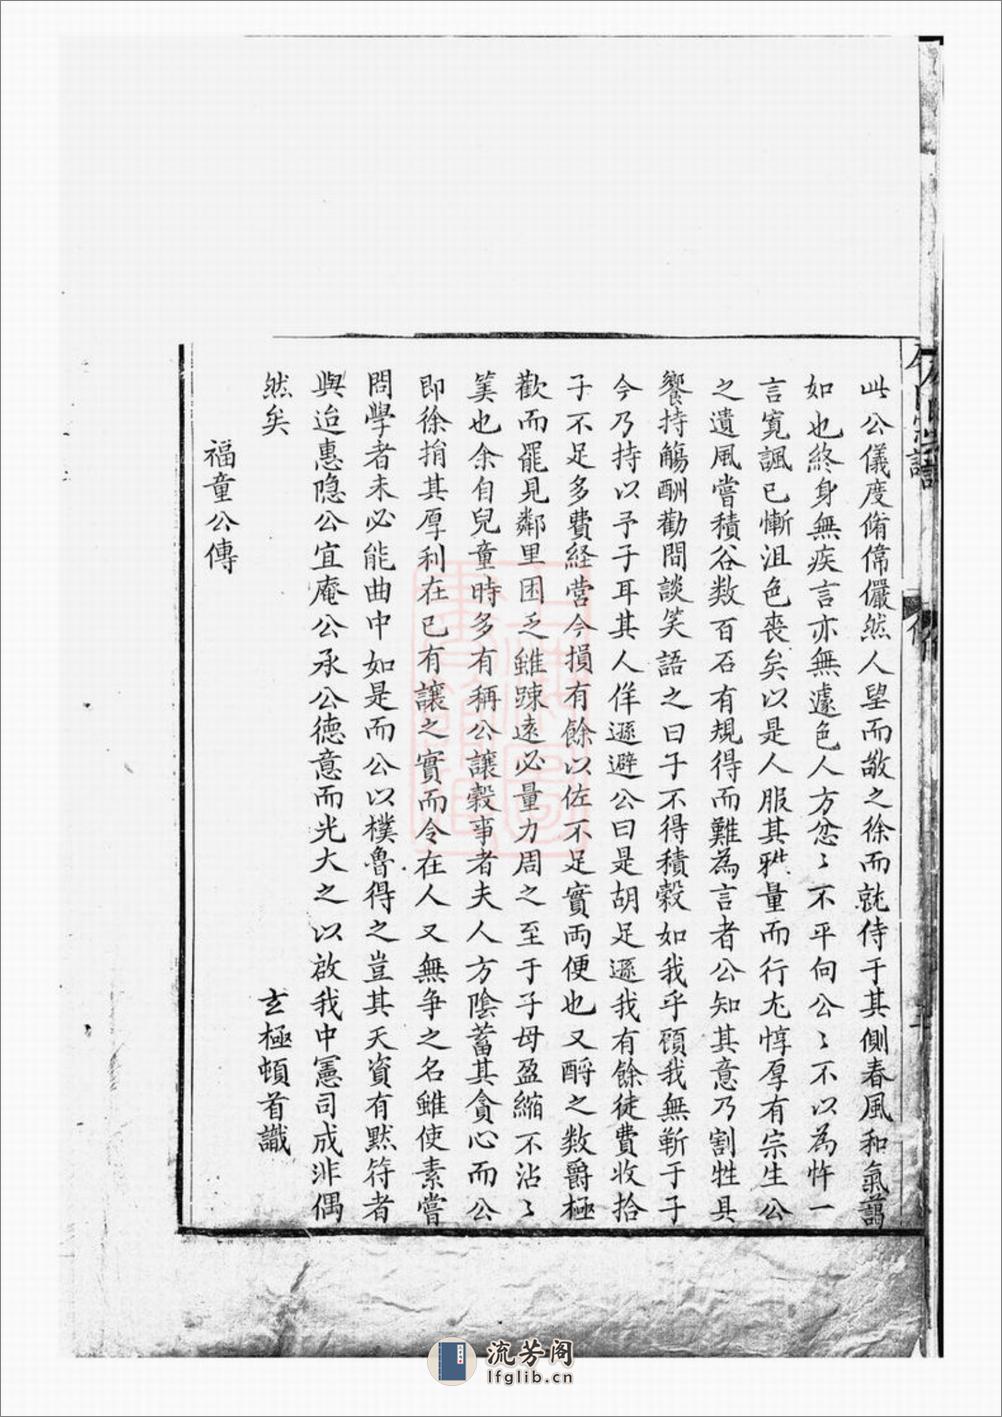 此公儀度脩偉儼然人望而敬之徐而就侍于其側春風和氣藹
如也終身無疾言亦無遽色人方忿〻不平向公〻不以為忤一
言寬諷已慚沮色喪矣以是人服其雅量而行尤惇厚有宗生公
之遺風嘗積谷数百石有規得而難為言者公知其意乃割牲具
饗持觴酬勸間談笑語之曰子不得積穀如我乎頋我無靳于子
今乃持以予子耳其人佯遜避公曰是胡足遜我有餘徒費收拾
子不足多費経营今損有餘以佐不足實両便也又酹之数爵極
歡而罷見鄰里困乏雖踈遠必量力周之至于子母盈縮不沾〻
筭也余自兒童時多有稱公讓穀事者夫人方陰蓄其貪心而公
即徐捐其厚利在已有讓之實而令在人又無争之名雖使素嘗
問學者未必能曲中如是而公以樸魯得之豈其天資有默符者
與迨惠隐公宜庵公承公德意而光大之以啟我中憲司成兆偶
然矣
玄極頓首識
福童公傳
流芳阁
lfglib.cn